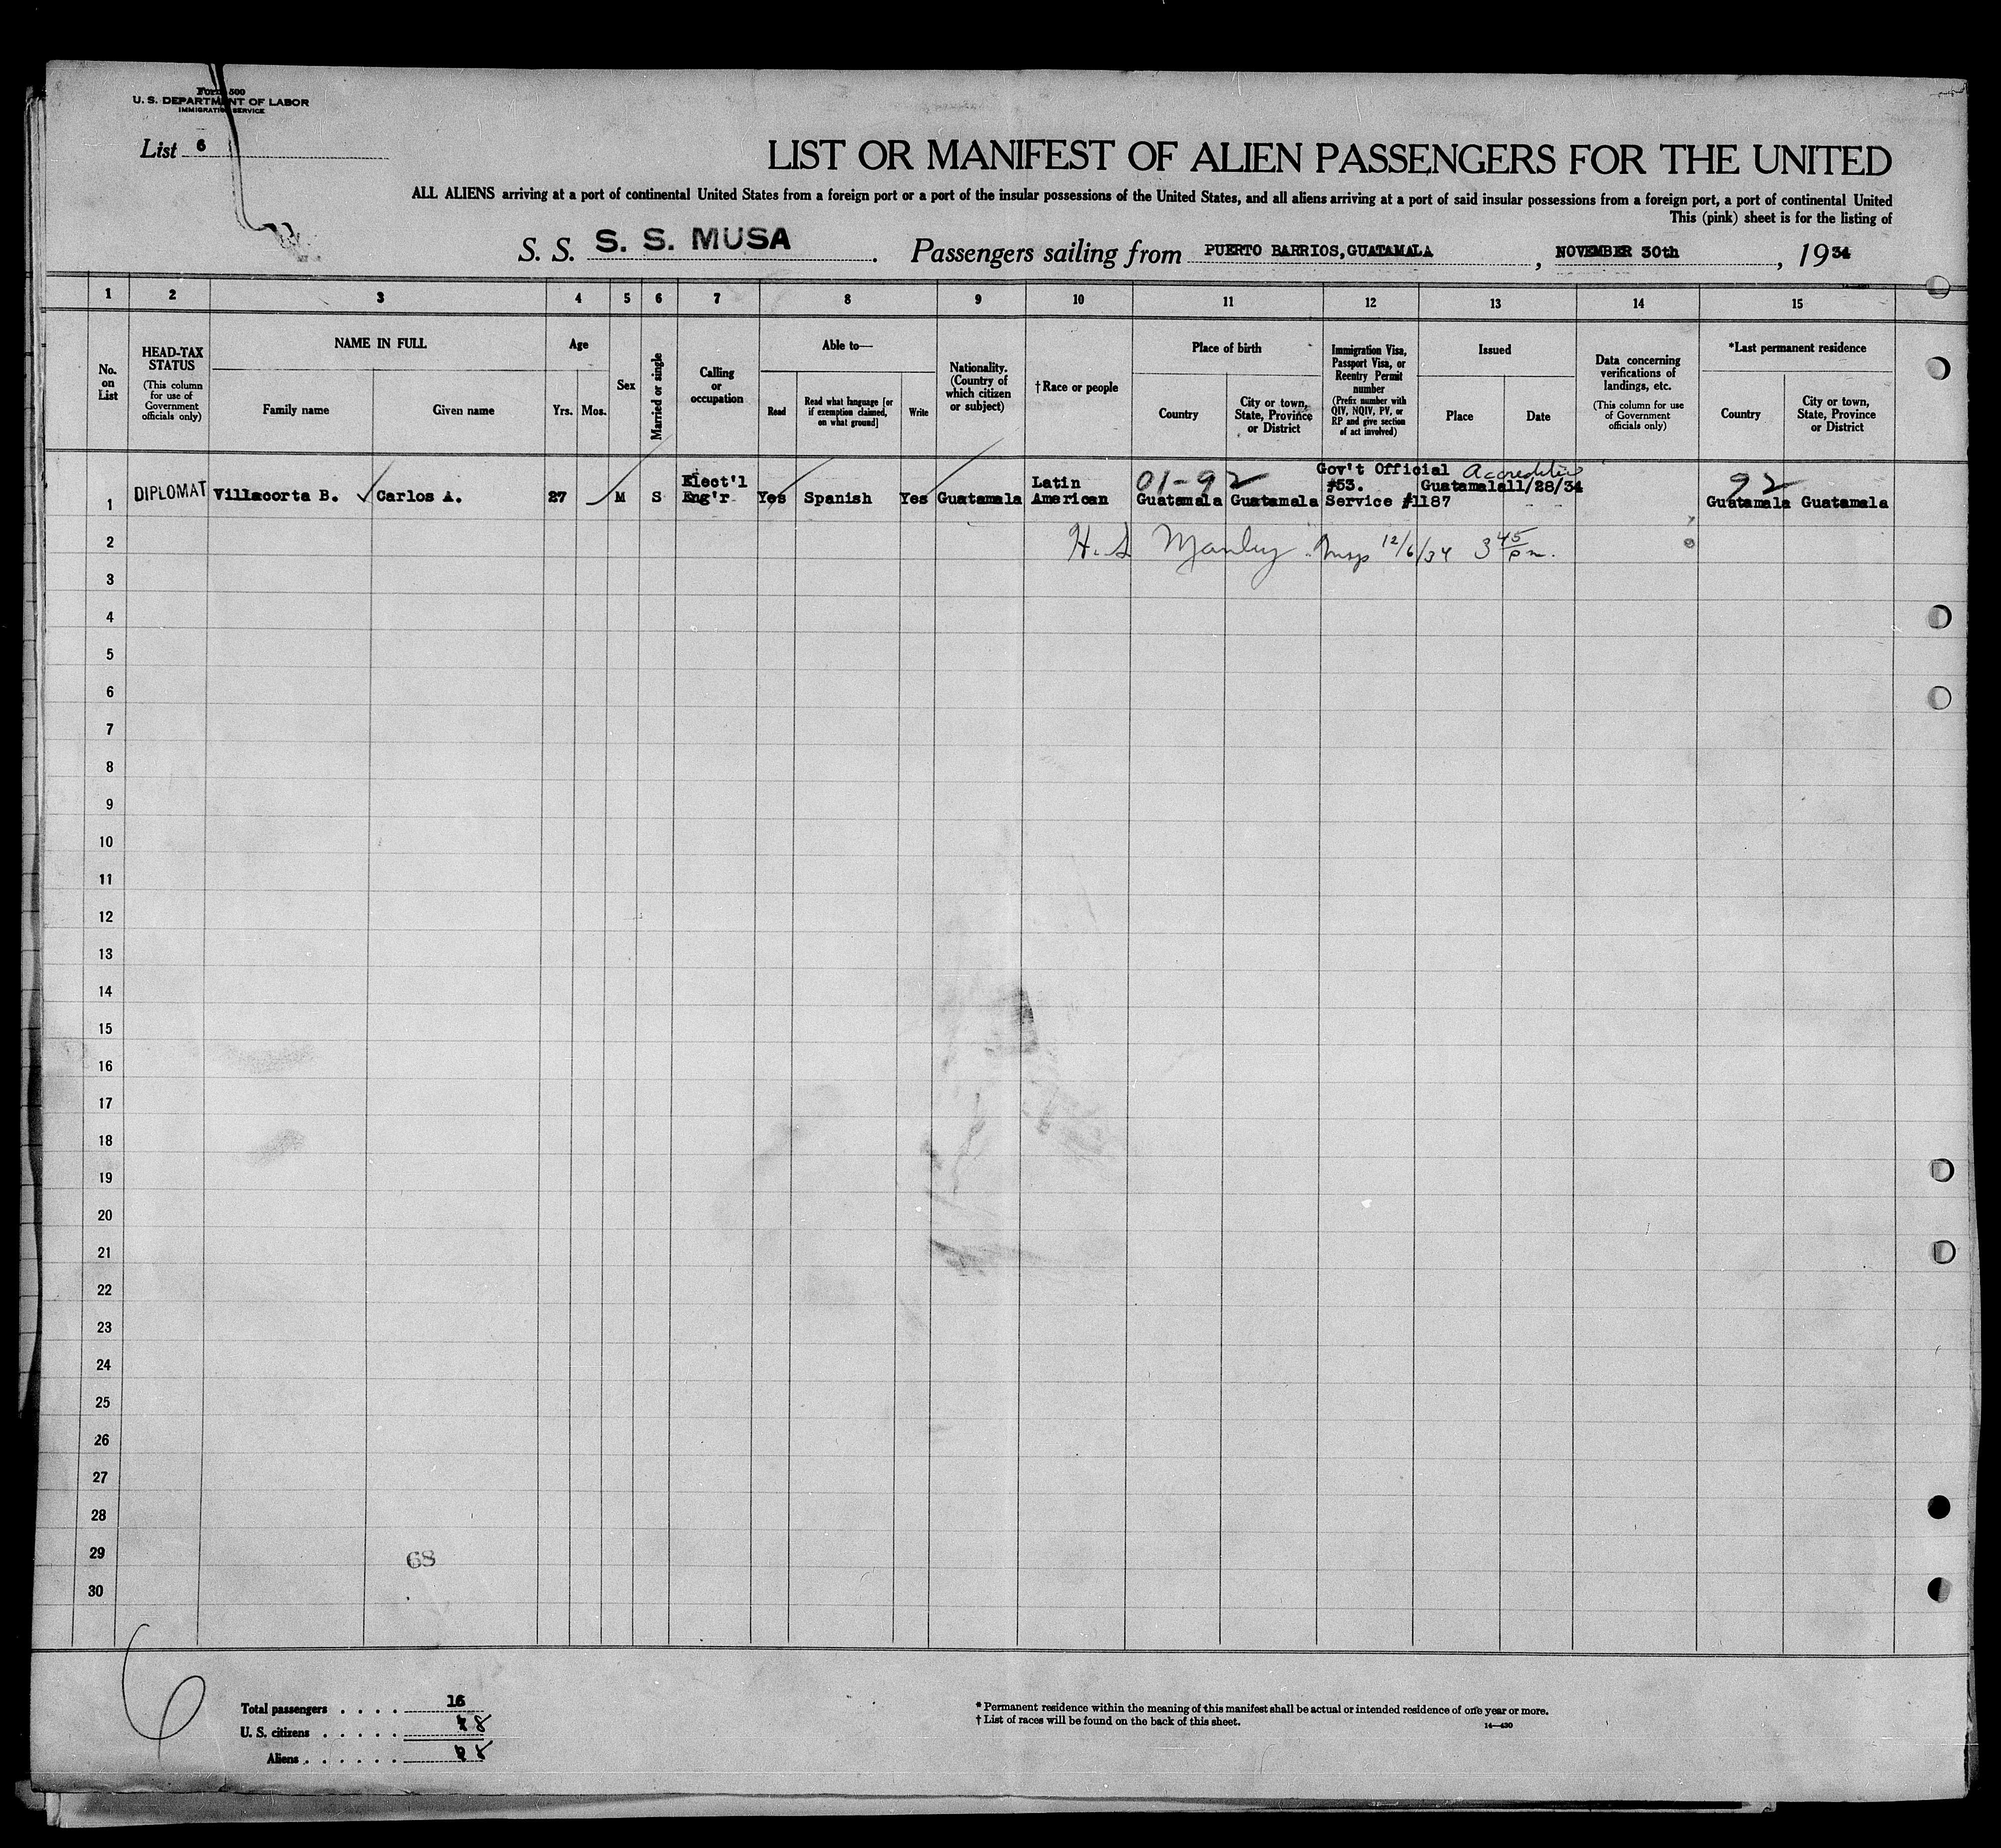 Form 500
U. S. DEPARTMENT OF LABOR
IMMIGRATION SERVICE
List 6
LIST OR MANIFEST OF ALIEN PASSENGERS FOR THE UNITED
ALL ALIENS arriving at a port of continental United States from a foreign port or a port of the insular possessions of the United States, and all aliens arriving at a port of said insular possessions from a foreign port, a port of continental United
This (pink) sheet is for the listing of
S. S. S. S. MUSA. Passengers sailing from PUERTO BARRIOS, GUATAMALA, NOVEMBER 30th, 1934
1 2 3 4 5 6 7 8 9 10 11 12 13 14 15
No. on List
HEAD-TAX STATUS
(This column for use of Government officials only)
NAME IN FULL
Family name
Given name
Age
Yrs. Mos.
Sex
Married or single
Calling or occupation
Able to—
Read
Read what language [or if exemption claimed, on what ground]
Write
Nationality. (Country of which citizen or subject)
†Race or people
Place of birth
Country
City or town, State, Province or District
Immigration Visa, Passport Visa, or Reentry Permit number
(Prefix number with QIV, NQIV, PV, or RP and give section of act involved)
Issued
Place
Date
Data concerning verifications of landings, etc.
(This column for use of Government officials only)
*Last permanent residence
Country
City or town, State, Province or District
1 DIPLOMAT Villacorta B. ✓ Carlos A. 27 M S Elect'l Eng'r Yes Spanish Yes Guatamala Latin American 01-92 Guatamala Guatamala Gov't Official #53. Service #1187 Guatamala 11/28/34 92 Guatamala Guatamala
2 H. S. Manley Insp 12/6/34 3 45 pm.
3
4
5
6
7
8
9
10
11
12
13
14
15
16
17
18
19
20
21
22
23
24
25
26
27
28
29
30
68
6
Total passengers . . . . 16
U. S. citizens . . . . . 8
Aliens . . . . . . 8
* Permanent residence within the meaning of this manifest shall be actual or intended residence of one year or more.
† List of races will be found on the back of this sheet.
14—430